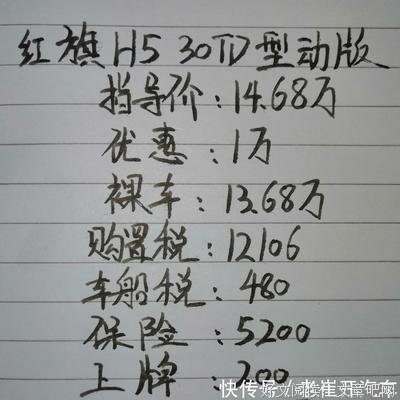 红旗H5 30TD型动版
指导价:14.68万
优惠:1万
裸车:13.68万
购置税:12106
车船税:480
保险:5200
上牌:200
快传号/老崔